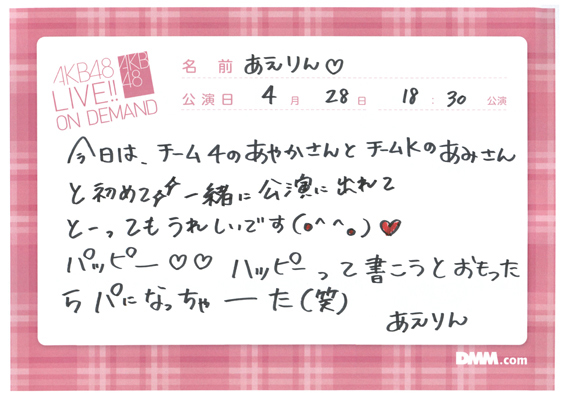 AKB48
LIVE!!
ON DEMAND
AKB
48
名 前 あえりん♡
公演日 4月 28日 18:30 公演
今日は、チーム4のあやかさんとチームKのあみさん
と初めて 一緒に公演に出れて
とーってもうれしいです(•^^•)♥
パッピー♡♡ ハッピーって書こうとおもった
らパになっちゃーた(笑)
あえりん
DMM.com